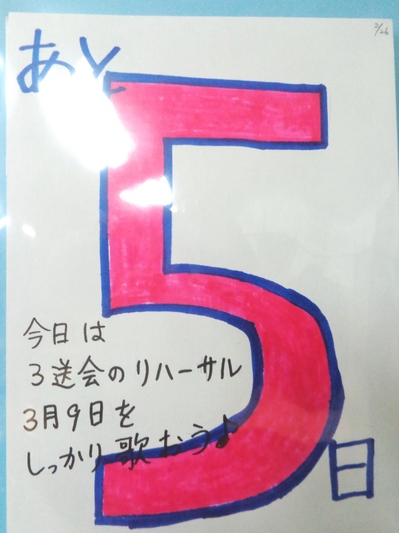 2/26
あと
5
日
今日は
3送会のリハーサル
3月9日を
しっかり歌おう♪